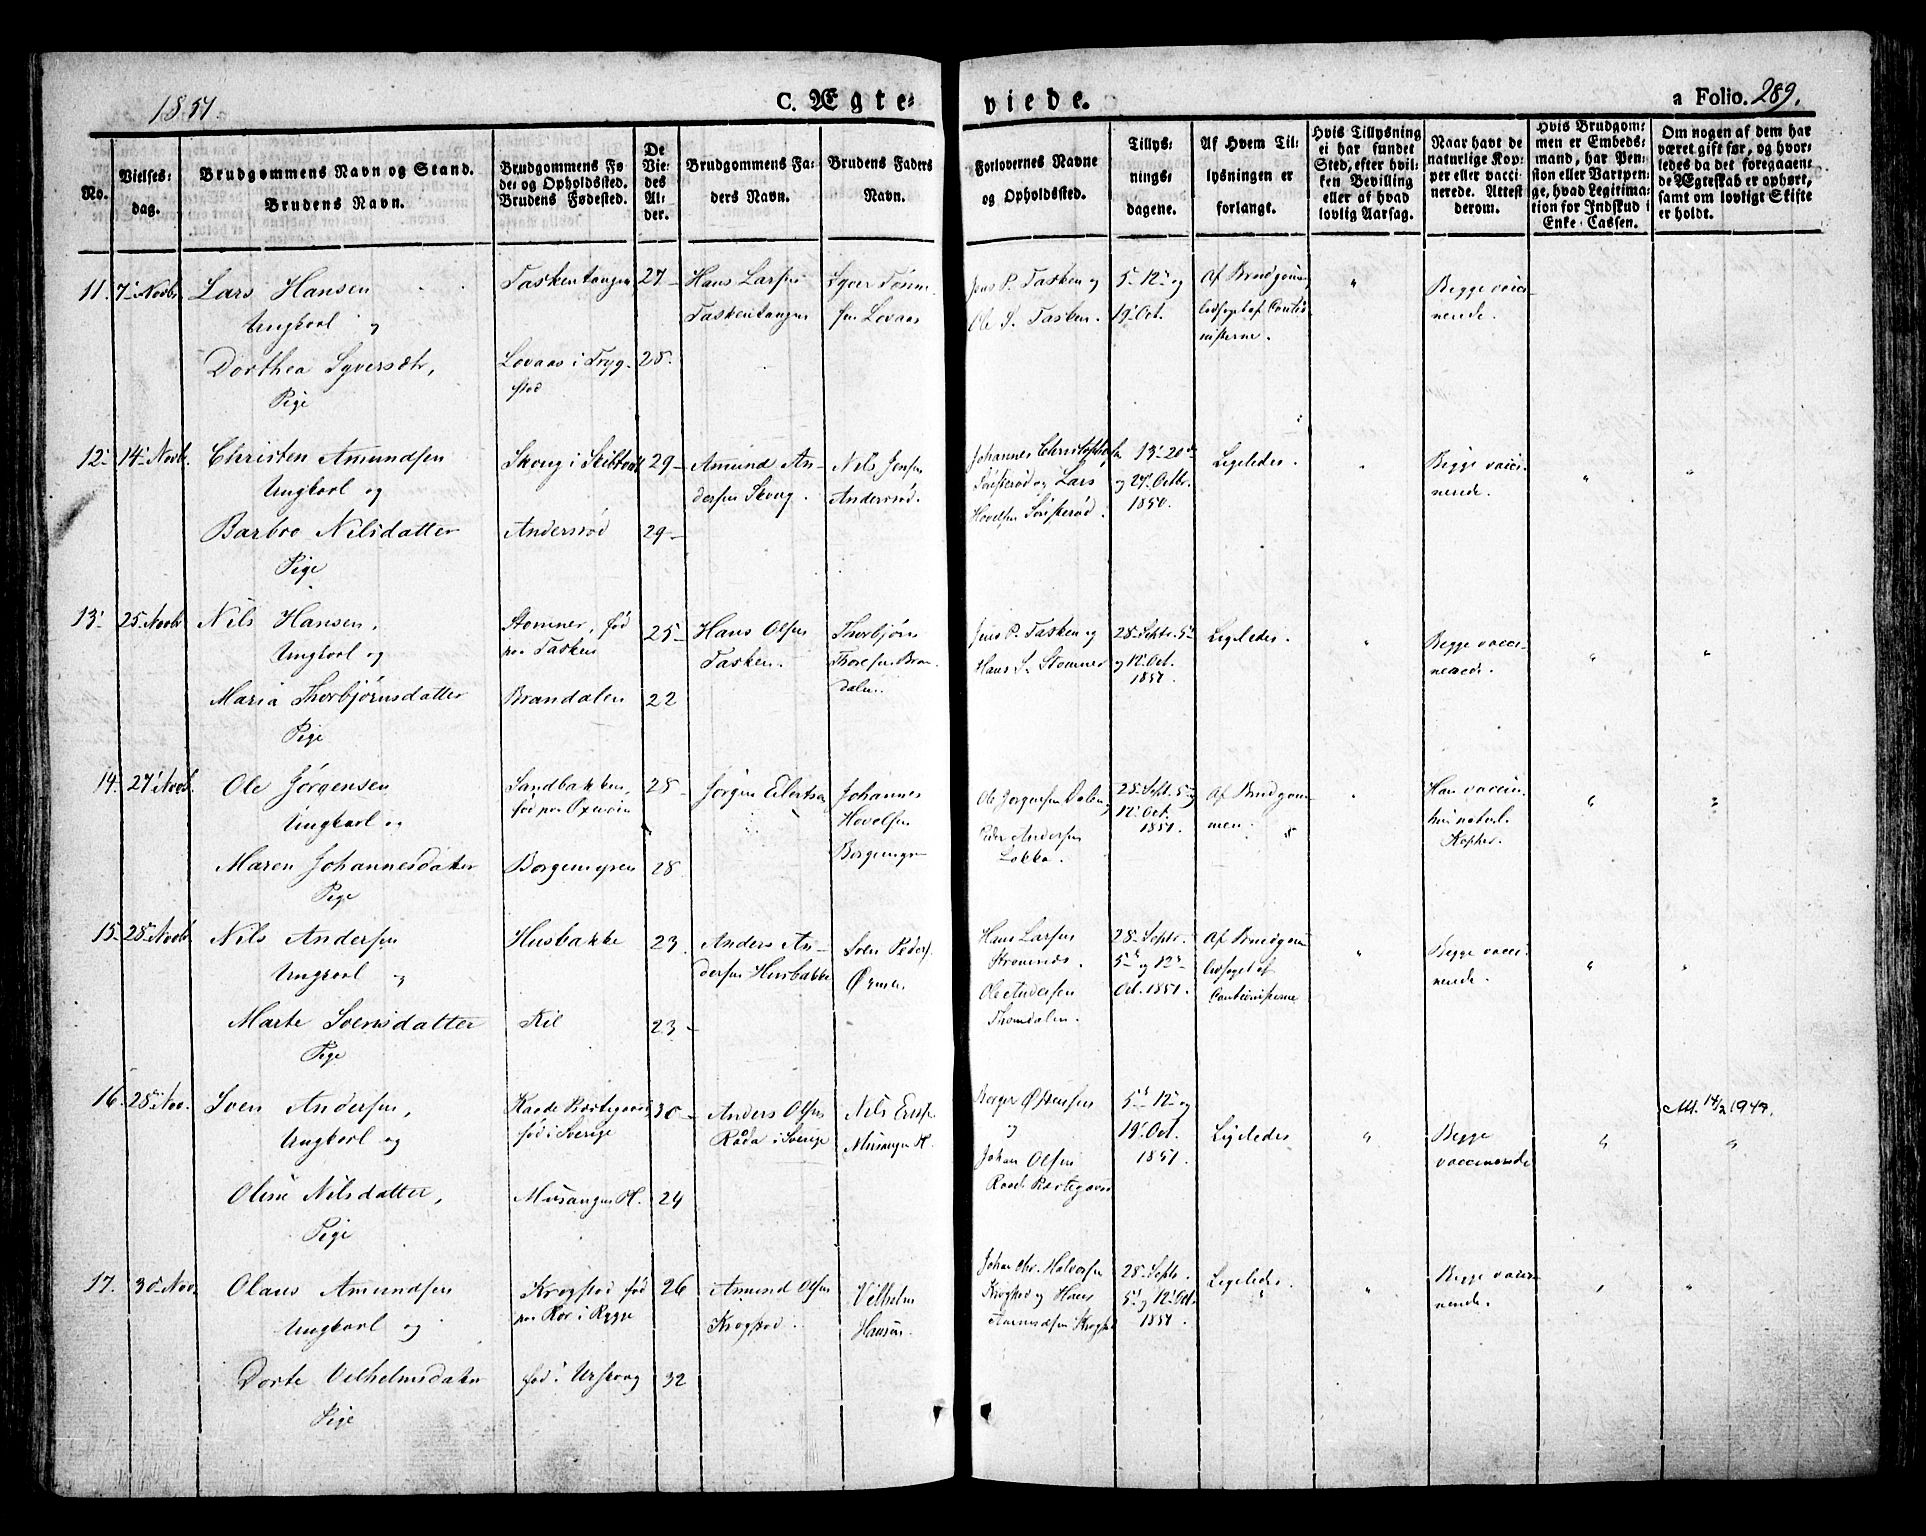 1851.
C. Ægte-
viede.
a Folio. 289.
No.
Vielses-
dag.
Brudgommens Navn og Stand.
Brudens Navn.
Brudgommens Fø-
de- og Opholdssted.
Brudens Fødested.
De
Vie-
des
Al-
der.
Brudgommens Fa-
ders Navn.
Brudens Faders
Navn.
Forlovernes Navne
og Opholdssted.
Tillys-
nings-
dagene.
Af Hvem Til-
lysningen er
forlangt.
Hvis Tillysning
ei har fundet
Sted, efter hvil-
ken Bevilling
eller af hvad
lovlig Aarsag.
Naar havt de
naturlige Kop-
per eller vacci-
nerede. Attest
derom.
Hvis Brudgom-
men er Embeds-
mand, har Pen-
sion eller Vartpen-
ge, hvad Legitima-
tion for Indskud i
Enke-Cassen.
Om nogen af dem har
været gift før, og hvor-
ledes da det foregaaen-
de Ægteskab er ophørt,
samt om lovligt Skifte
er holdt.
11. 7' Novbr
Lars Hansen
Ungkarl og
Dorthea Syversdtr,
Pige
Taskentangen
Lovaas i Tryg-
stad
27-
25.
Hans Larsen
Taskentangen
Syver
sen Lovaas
Jens P. Tasken og
Ole S. Tasken.
5' 12' og
19' Oct.
Af Brudgommen,
ledsaget af Cautio-
nisterne.
"
Begge vacci-
nerede.
12' 14' Novb.
Christen Amundsen
Ungkarl og
Barbro Nilsdatter
Pige
Skoug i Skibtvet
Andersrød
29-
29-
Amund An-
dersen Skoug.
Nils Jensen
Andersrød.
Johannes Christophersen
og Lars
Hovelsen
13' 20de
og 27' Octbr.
1850.
Ligeledes.
"
Begge vacci-
nerede.
"
"
13' 25' Novbr
Nils Hansen,
Ungkarl og
Maria Thorbjørnsdatter
Pige
Stomner, fød
paa Tasken
Brandalen
25-
22
Hans Olsen
Tasken.
Thorbjørn
Thoresen Bran-
dalen.
Jens P. Tasken og
Hans S. Stomner
28' Septr. 5te
og 12' Oct.
1851.
Ligeledes.
"
Begge vacci-
nerede.
"
"
14. 27' Novb.
Ole Jørgensen
Ungkarl og
Maren Johannesdatter
Pige
Sandbakken,
fød paa
Borgemyren
28-
28
Jørgen Eilertsen
Johannes
Hovelsen
Borgemyr
Ole Jørgensen Dalen
Peder Andersen
Løkka.
28' Sept. 5te og
12' Oct.
1851.
Af Brudgom-
men.
"
Han vaccin.
hun naturl.
Kopper.
"
"
15- 28' Novb.
Nils Andersen
Ungkarl og
Marte Svensdatter
Pige
Husbakke
Kil
23.
23-
Anders An-
dersen Husbakke
Sven Peders.
Hans Larsen
Ole Andersen
28' Septr.
5te og 12te
Oct. 1851.
Af Brudgom
ledsaget af
Cautionisterne
"
Begge vacci-
nerede.
"
"
16. 28' Nov.
Sven Andersen,
Ungkarl og
Oline Nilsdatter,
Pige
fød i Sverige
Musangen Pl.
30-
24
Anders Olsen
Råda i Sverige
Nils
Musangen Pl.
Borger Østensen
og
Johan Olsen
5te 12' og
19' Oct.
1851.
Ligeledes
"
Begge
vaccinerede
"
"
Att. 14/2 1949.
17. 30' Nov.
Olaus Amundsen
Ungkarl og
Dorte Vilhelmsdatter
Pige
Krogstad fød
paa Roer i Rygge
fød i Urskoug
26
32
Amund Olsen
Krogstad.
Vilhelm
Hansen.
Johan Chr. Halvorsen
Krogstad og Hans
Amundsen Krogstad
28' Septr.
5te og 12' Oct.
1851.
Ligeledes.
"
Begge vacci-
nerede.
"
"